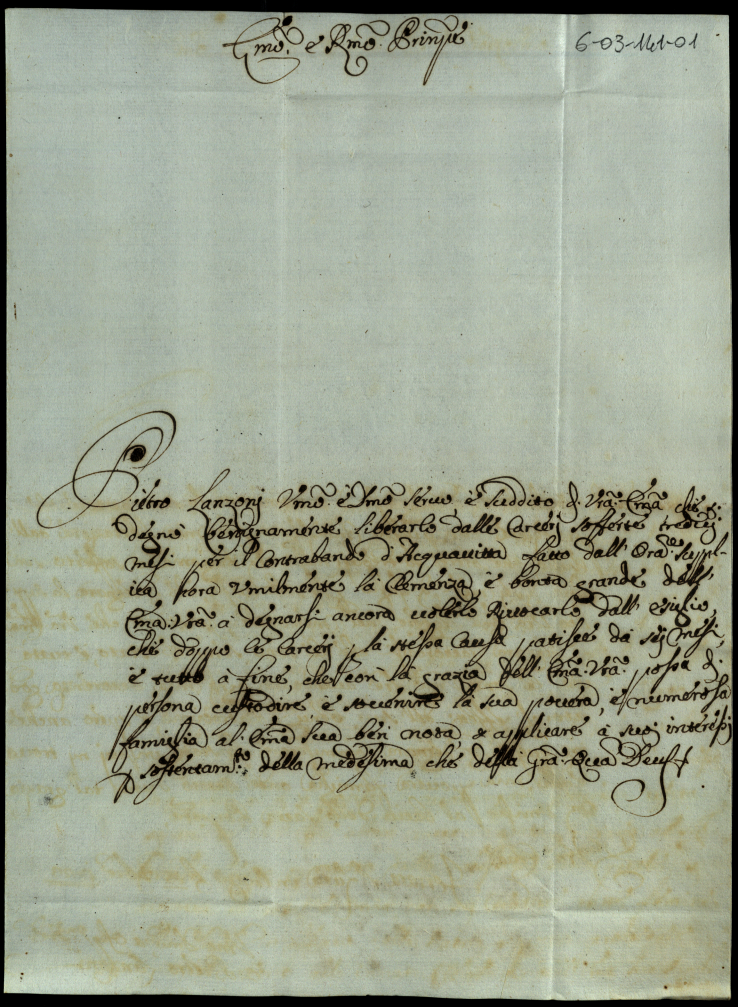 Em̃o: e Rm̃o: Prinpe
6-03-141-01
Pietro Lanzonj Vmõ: è Dmõ seruo è suddito di Vrã: Em̃a che si
degnò benignamente liberarlo dalle Carcerj sofferte tredicj
mesi per il Contrabando d'Acquauitta fatto dall' Orãe: Suppl-
ica hora Vmilmente la Clemenza, è bontà grande dell'
Em̃a: Vrã: à degnarsi ancora uolerlo Riuocarlo dall' esiglio,
che doppo le Carcerj p la stessa Causa patisce da sej mesi,
è tutto à fine, che con la grazia dell' Em̃a: Vrã: possa di
persona custodire è souenire la sua pouera, è numerosa
famiglia al: Em̃a sua ben nota, & applicare à suoj interessj
p sostentamto: della medesima che della Grã: Qua Deus &